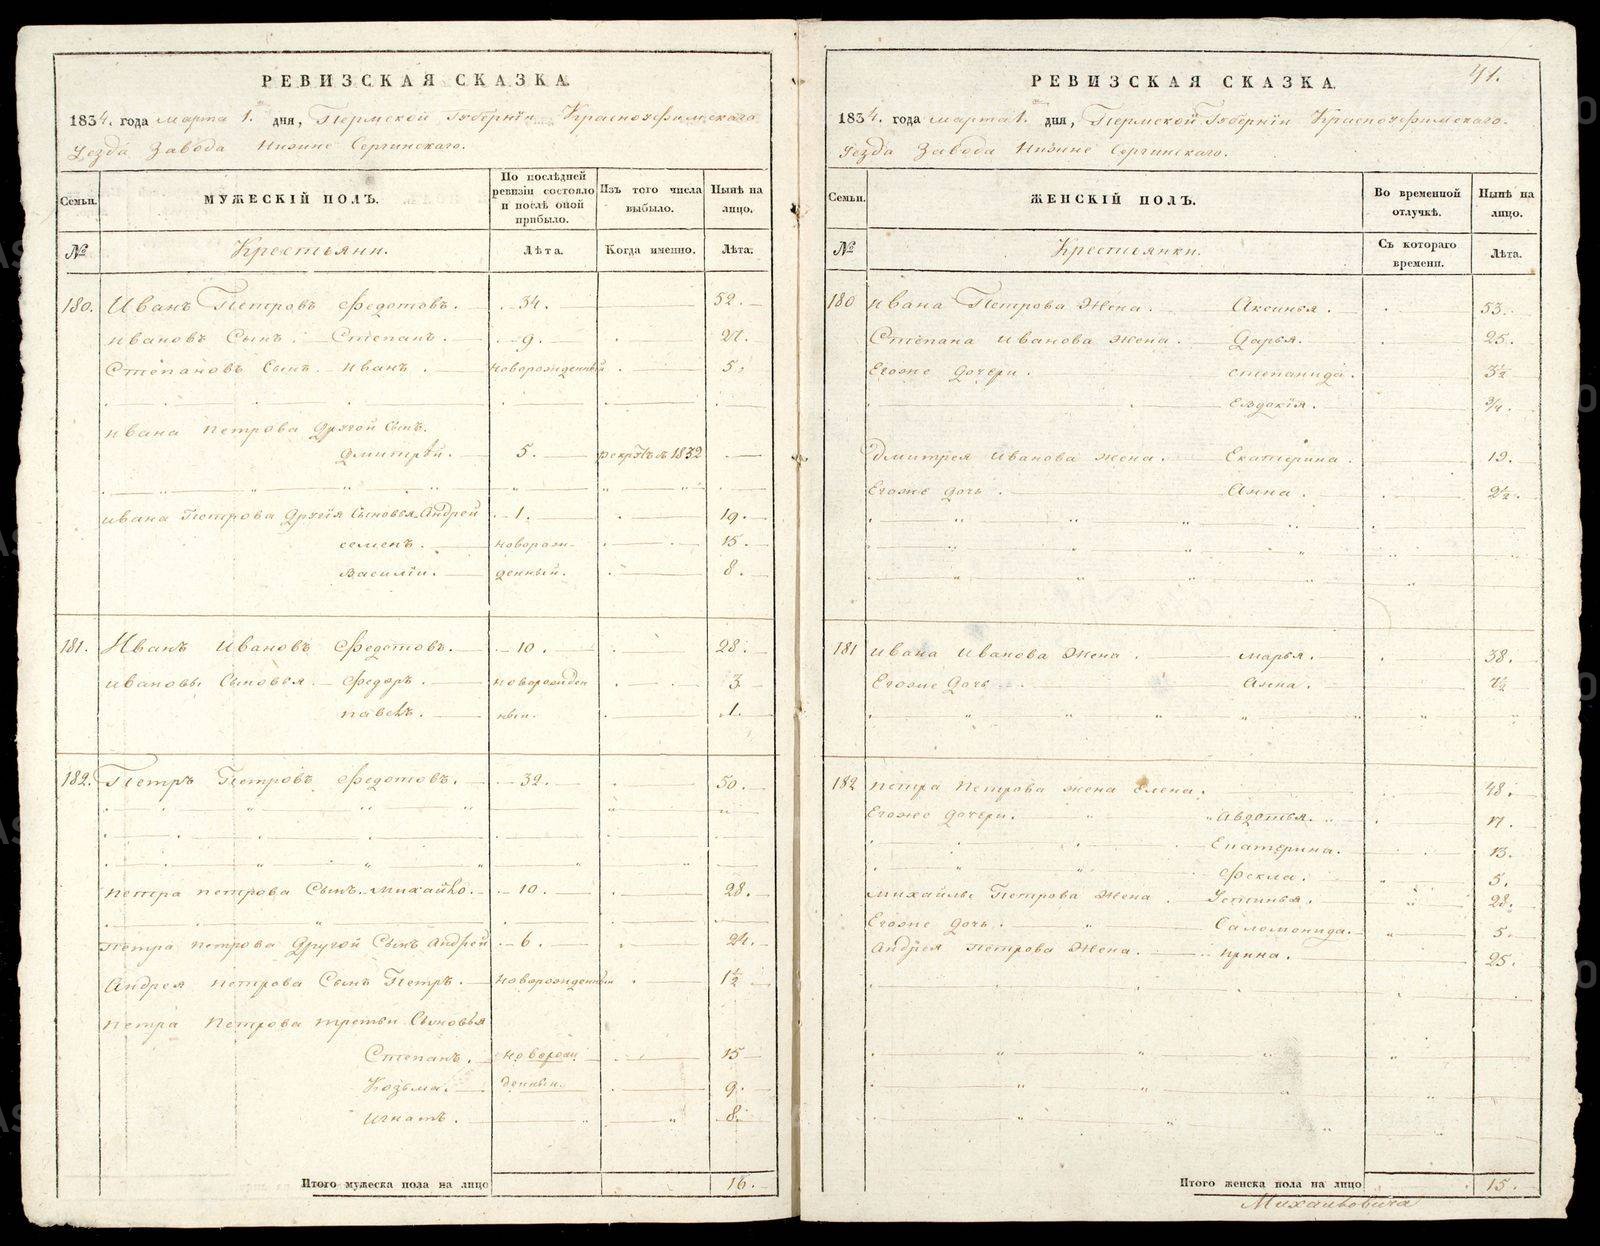 РЕВИЗСКАЯ СКАЗКА.
1834. года марта 1. дня, Пермской Губернїи Красноуфимскаго
Уезда Завода Нижне Сергинскаго.
Семьи.
МУЖЕСКІЙ ПОЛЪ.
По послѣдней ревизіи состояло и послѣ оной прибыло.
Изъ того числа выбыло.
Нынѣ на лицо.
№
Крестьяни.
Лѣта.
Когда именно.
Лѣта.
180. Иванъ Петровъ Федотовъ. 34. 52.
Ивановъ Сынъ. Степанъ. 9. 27.
Степановъ Сынъ Иванъ. новорожденный 5.
Ивана Петрова Другой Сынъ.
Дмитрѣй. 5. рекрутъ 1832
Ивана Петрова Другїя Сыновья Андрей 1. 19.
Семенъ. новорож- 15.
Василїи. денныи. 8.
181. Иванъ Ивановъ Федотовъ. 10. 28.
Ивановы Сыновья Федоръ. новорожден 3
павелъ. ныи. 1.
182. Петръ Петровъ Федотовъ. 32. 50.
Петра петрова Сынъ Михайло. 10. 28.
Петра Петрова Другой Сынъ Андрей 6. 24.
Андрея петрова Сынъ Петръ. новорожденный 1½
Петра Петрова третьи Сыновья
Степанъ. новорож 15
Козьма. денныи. 9.
Игнатъ. 8.
Итого мужеска пола на лицо 16.
41.
РЕВИЗСКАЯ СКАЗКА.
1834. года марта 1. дня, Пермской Губернїи Красноуфимскаго.
Уезда Завода Нижне Сергинскаго.
Семьи.
ЖЕНСКІЙ ПОЛЪ.
Во временной отлучкѣ.
Нынѣ на лицо.
№
Крестьянки.
Съ котораго времени.
Лѣта.
180 Ивана Петрова Жена. Аксинья. 53.
Степана Иванова жена. Дарья. 25.
Егоже Дочери. Степанида. 3½
Евдокїя. ¾.
Дмитрея Иванова жена. Екатерина. 19.
Егоже дочь. Анна. 2½.
181 Ивана Иванова Жена. марья. 38.
Егоже Дочь Анна. 7½
182 Петра Петрова жена Елена. 48.
Егоже дочери. Авдотья. 17.
Екатерина. 13.
Фекла. 5.
михайлы Петрова Жена. Устинья. 28.
Егоже дочь. Саломонида. 5.
Андрея Петрова Жена. Ирина. 25.
Итого женска пола на лицо 15.
Михайловича